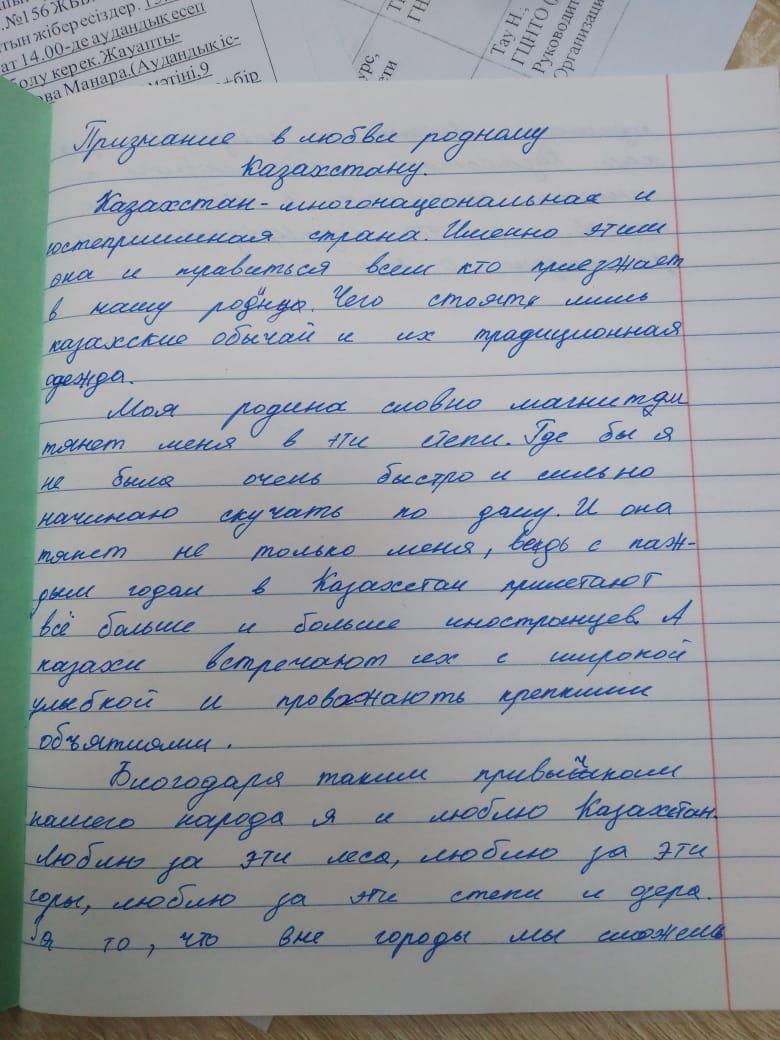 .№156 ЖББ
тын жібересіздер. 15
ат 14.00-де аудандық есеп
болу керек. Жауапты-
ова Манара.(Аудандық іс-
мәтіні,9
+бір
ГН
урс,
ети
Тау Н.,
ГЦНТО (
Руководит
Организаци
Признание в любви родному
Казахстану.
Казахстан-многонацеональная и
гостеприимная страна. Именно этим
она и нравиться всем кто приезжает
в нашу родину. Чего стоять лишь
казахские обычай и их традиционная
одежда.
Моя родина словно магнитом
тянет меня в эти степи. Где бы я
не была очень быстро и сильно
начинаю скучать по дому. И она
тянет не только меня, ведь с каж-
дым годом в Казахстан прилетают
всё больше и больше иностранцев. А
казахи встречают их с широкой
улыбкой и провожають крепкими
объятиями.
Благодаря таким привычкам
нашего народа я и люблю Казахстан.
Люблю за эти леса, люблю за эти
горы, люблю за эти степи и озера.
За то, что вне городы мы сможешь